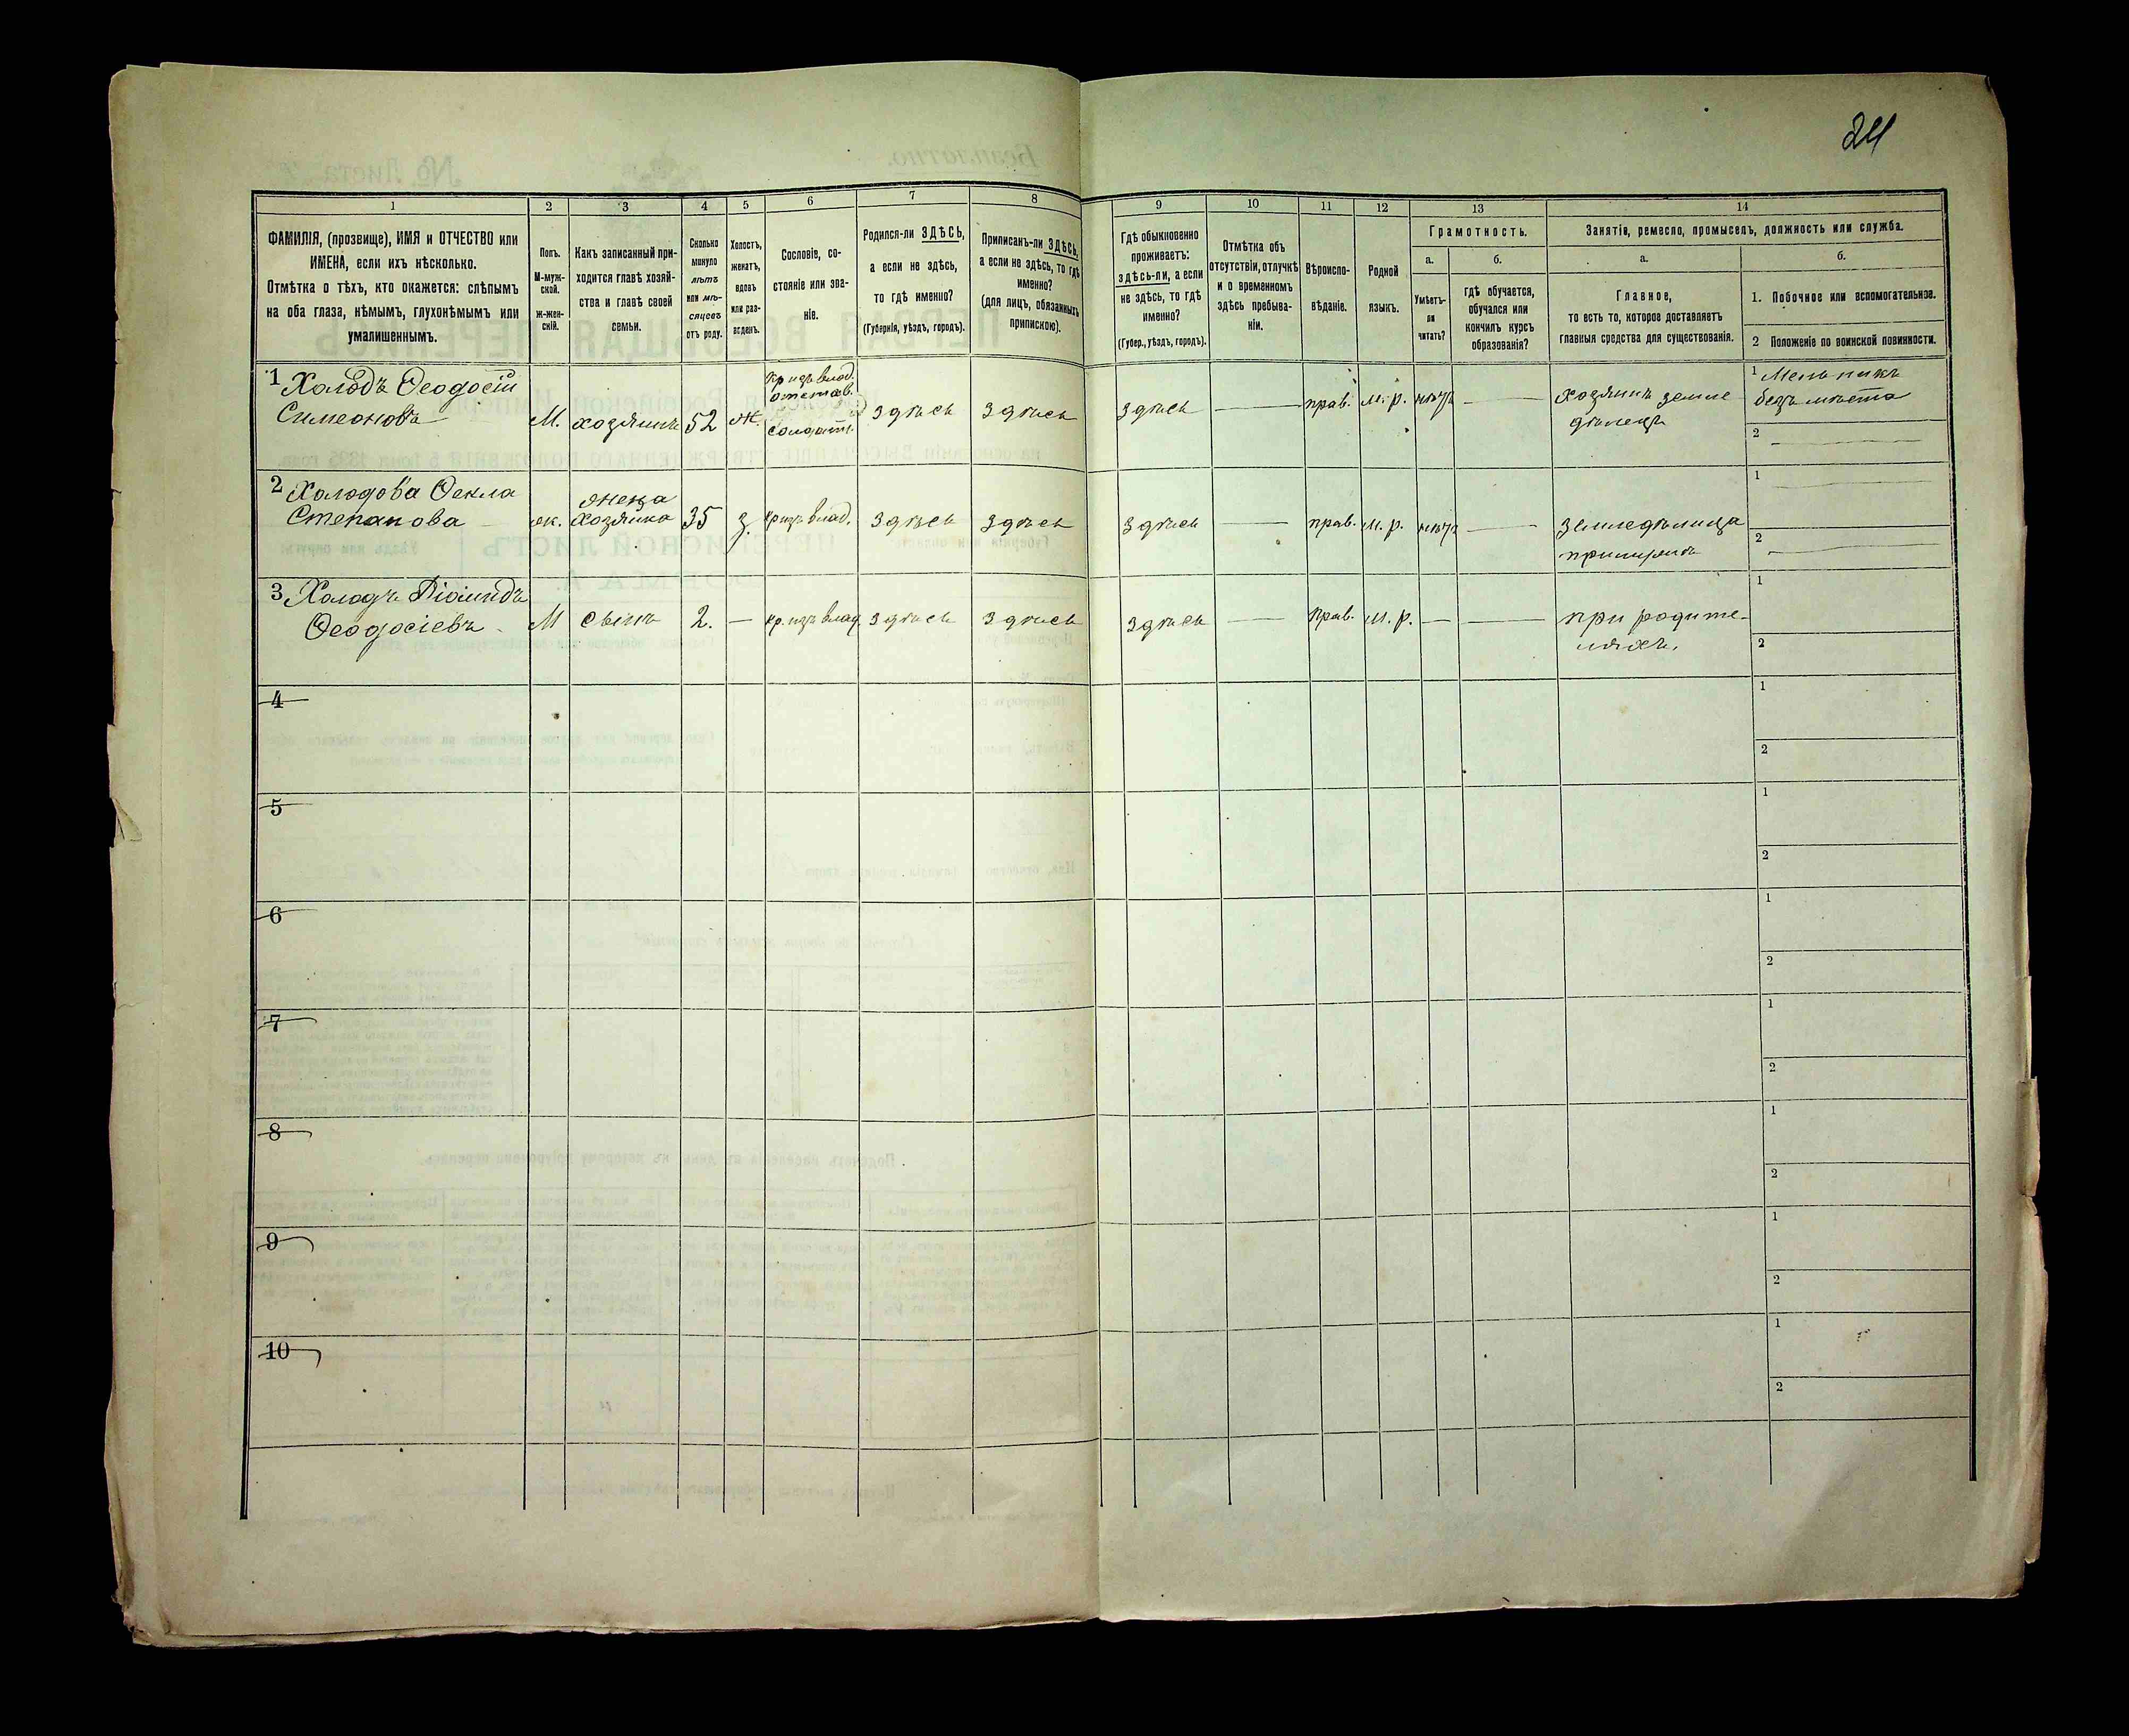 24
1
2
3
4
5
6
7
8
9
10
11
12
13
14
ФАМИЛІЯ, (прозвище), ИМЯ и ОТЧЕСТВО или
ИМЕНА, если ихъ нѣсколько.
Отмѣтка о тѣхъ, кто окажется: слѣпымъ
на оба глаза, нѣмымъ, глухонѣмымъ или
умалишеннымъ.
Полъ.
М-муж-
ской.
ж-жен-
скій.
Какъ записанный при-
ходится главѣ хозяй-
ства и главѣ своей
семьи.
Сколько
минуло
лѣтъ
или мѣ-
сяцевъ
отъ роду.
Холостъ,
женатъ,
вдовъ
или раз-
веденъ.
Сословіе, со-
стояніе или зва-
ніе.
Родился-ли ЗДѢСЬ,
а если не здѣсь,
то гдѣ именно?
(Губернія, уѣздъ, городъ).
Приписанъ-ли ЗДѢСЬ,
а если не здѣсь, то гдѣ
именно?
(для лицъ, обязанныхъ
припискою).
Гдѣ обыкновенно
проживаетъ:
здѣсь-ли, а если
не здѣсь, то гдѣ
именно?
(Губер., уѣздъ, городъ).
Отмѣтка объ
отсутствіи, отлучкѣ
и о временномъ
здѣсь пребыва-
ніи.
Вѣроиспо-
вѣданіе.
Родной
языкъ.
Грамотность.
а.
Умѣетъ-
ли
читать?
б.
гдѣ обучается,
обучался или
кончилъ курсъ
образованія?
Занятіе, ремесло, промыселъ, должность или служба.
а.
Главное,
то есть то, которое доставляетъ
главныя средства для существованія.
б.
1. Побочное или вспомогательное.
2 Положеніе по воинской повинности.
1 Холодъ Ѳеодосій
Симеоновъ
М.
хозяинъ
52
Ж.
кр. изъ влад.
отстав.
солдатъ
здѣсь
здѣсь
здѣсь
прав.
м. р.
нѣтъ
хозяинъ земле
дѣлецъ
1 Мельникъ
безъ мѣста
2
2 Холодова Ѳекла
Степанова
ж.
жена
хозяина
35
з.
кр. изъ влад.
здѣсь
здѣсь
здѣсь
прав.
м. р.
нѣтъ
земледѣлица
1
2
3 Холодъ
Ѳеодосіевъ
М
сынъ
2.
кр. изъ влад.
здѣсь
здѣсь
здѣсь
прав.
м. р.
при родите-
ляхъ.
1
2
4
1
2
5
1
2
6
1
2
7
1
2
8
1
2
9
1
2
10
1
2